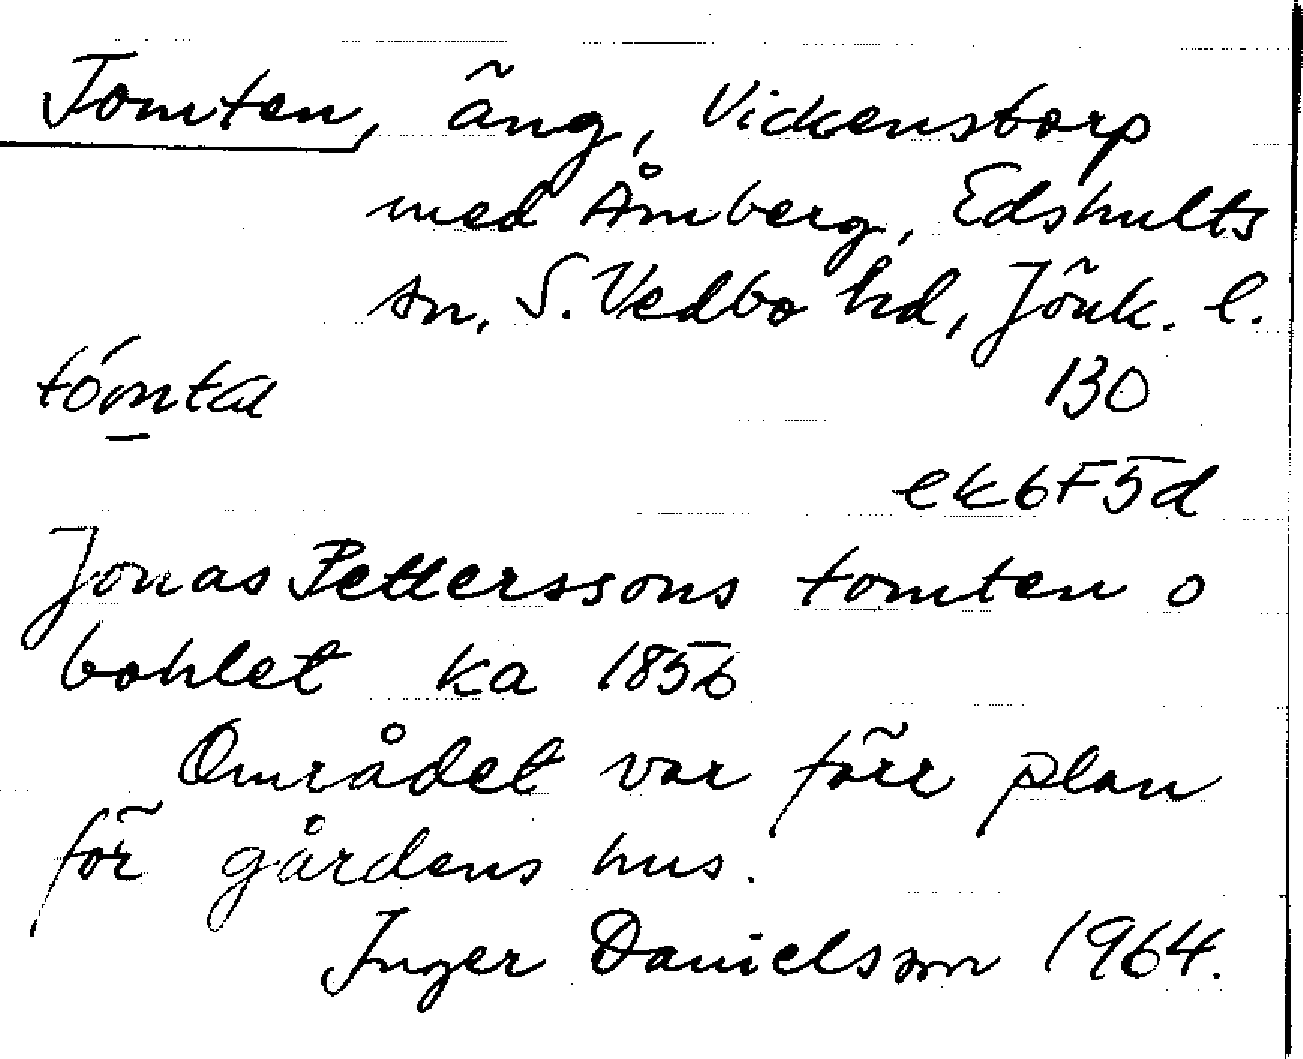 Tomten, äng, Vickenstorp
med Åmberg, Edshults
sn, S. Vedbo hd, Jönk. l.
tómta
130
ek6F5d
Jonas Petterssons tomten o
bohlet ka 1856
Området var förr plan
för gårdens hus.
Inger Danielsson 1964.